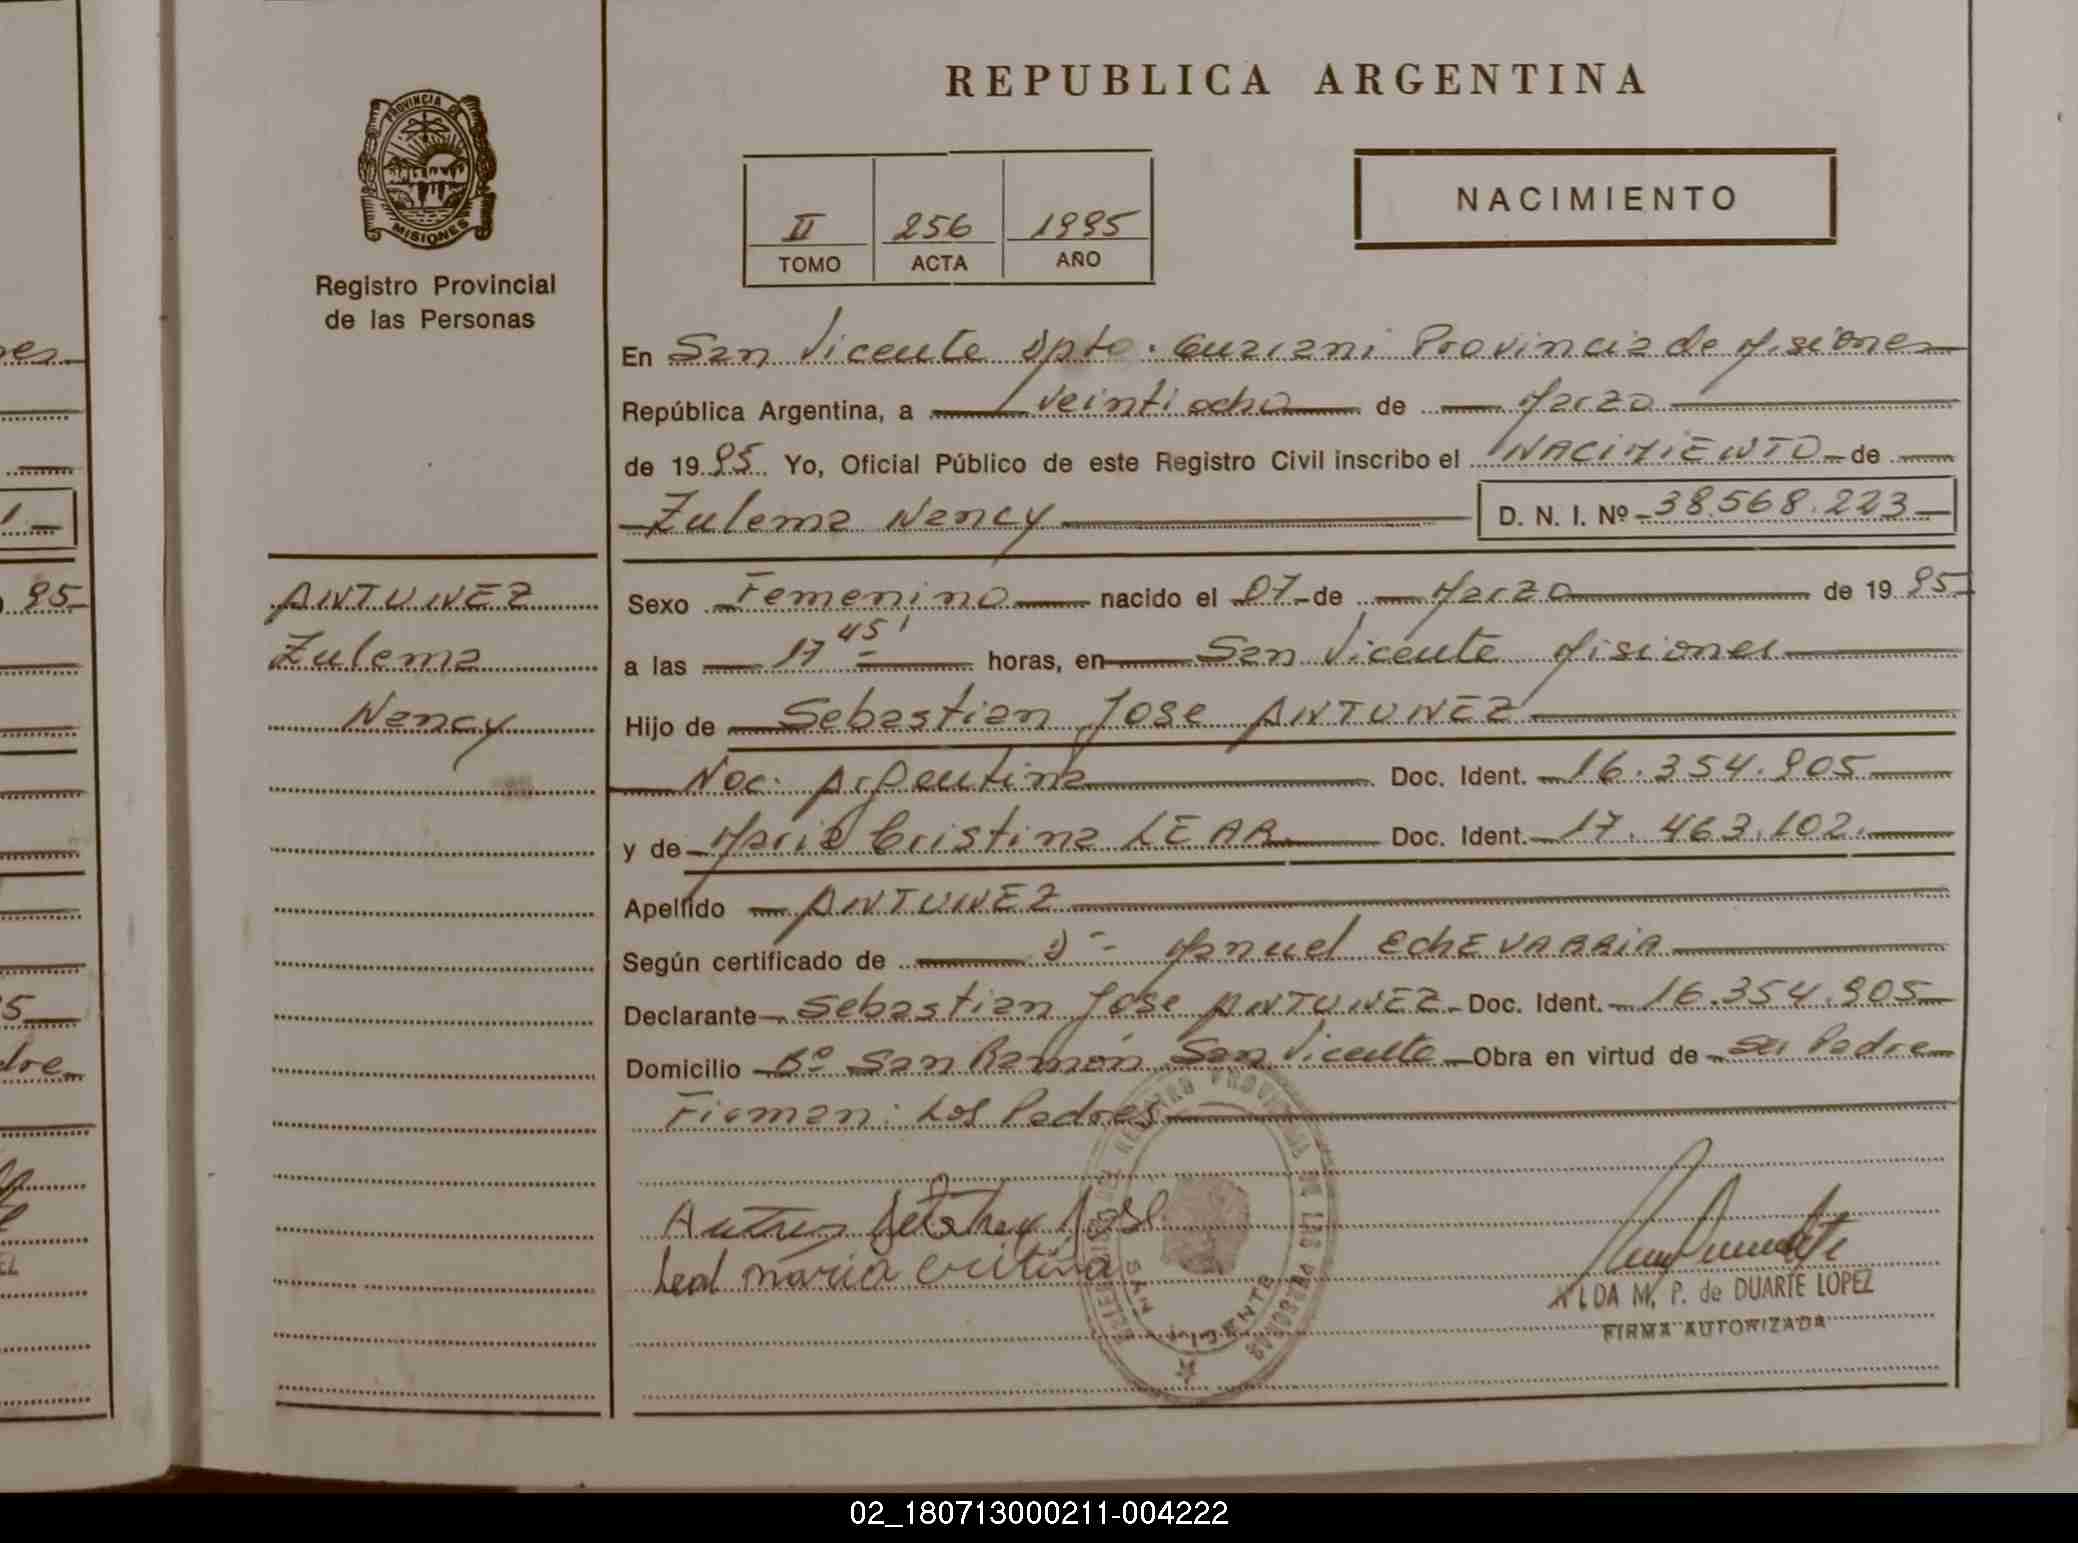 REPUBLICA ARGENTINA
PROVINCIA DE
MISIONES
Registro Provincial
de las Personas
II 256 1995
TOMO ACTA AÑO
NACIMIENTO
En San Vicente Dpto. Guarani Provincia de Misiones
República Argentina, a veintiocho de Marzo
de 1995 Yo, Oficial Público de este Registro Civil inscribo el NACIMIENTO de
Zulema Nancy D. N. I. Nº 38.568.223
ANTUNEZ
Zulema
Nancy
Sexo Femenino nacido el 07 de Marzo de 1995
a las 17 45' horas, en San Vicente Misiones
Hijo de Sebastian Jose ANTUNEZ
Nac. Argentina Doc. Ident. 16.354.905
y de Maria Cristina LEAR Doc. Ident. 17.463.102.
Apellido ANTUNEZ
Según certificado de Manuel EchEVARRIA
Declarante Sebastian Jose ANTUNEZ Doc. Ident. 16.354.905
Domicilio Bº San Ramón San Vicente Obra en virtud de ser Padre
Firman: Los Padres
Leal maria critina
REGISTRO PROVINCIAL DE LAS PERSONAS
SAN VICENTE
ALDA M. P. de DUARTE LOPEZ
FIRMA AUTORIZADA
02_180713000211-004222